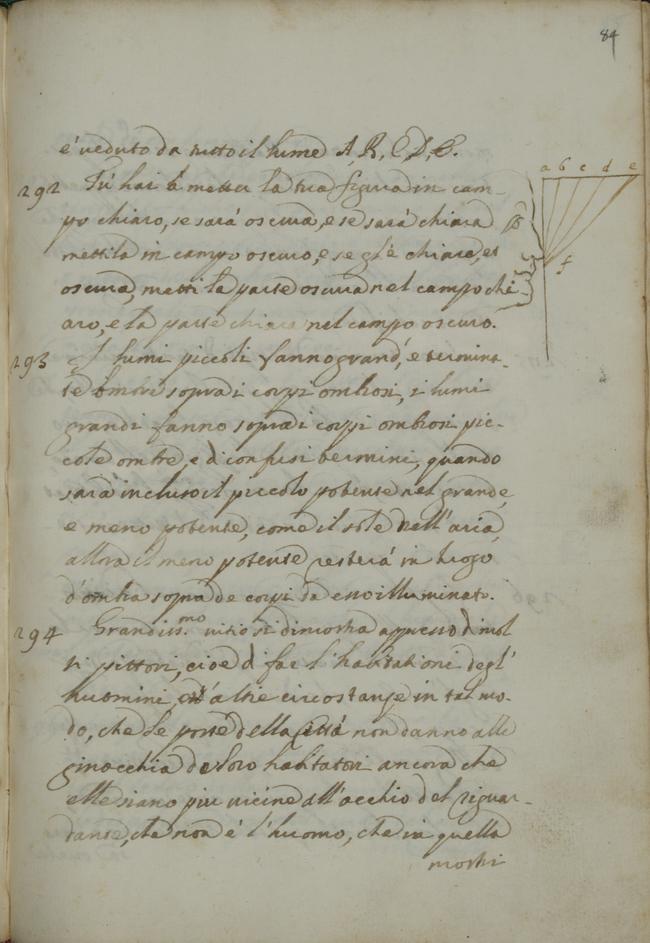 84
è ueduto da tutto il lume A, B, C, D, E.
a b c d e
f
292 Tu hai à metter la tua figura in cam-
po chiaro, se sarà oscura, e se sarà chiara
mettila in campo oscuro, e se gl'è chiara, et
oscura, metti la parte oscura nel campo chi
aro, e la parte chiara nel campo oscuro.
293 I lumi piccoli fanno grand', e termina-
te ombre sopra i corpi ombrosi, i lumi
grandi fanno sopra i corpi ombrosi pic-
cole ombre, e di confusi termini, quando
sarà incluso il piccolo potente nel grande,
e meno potente, come il sole nell'aria,
allora il meno potente resterà in luogo
d'ombra sopra de corpi da esso illuminato.
294 Grandiss.mo uitio si dimostra appresso di mol
ti pittori, cioè di far l'habitationi degl'
huomini, et altre circostanze in tal mo-
do, che le porte della Città non danno alle
ginocchia de loro habitatori ancora che
elle siano piu uicine all'occhio del riguar-
dante, che non è l'huomo, che in quella
mostri